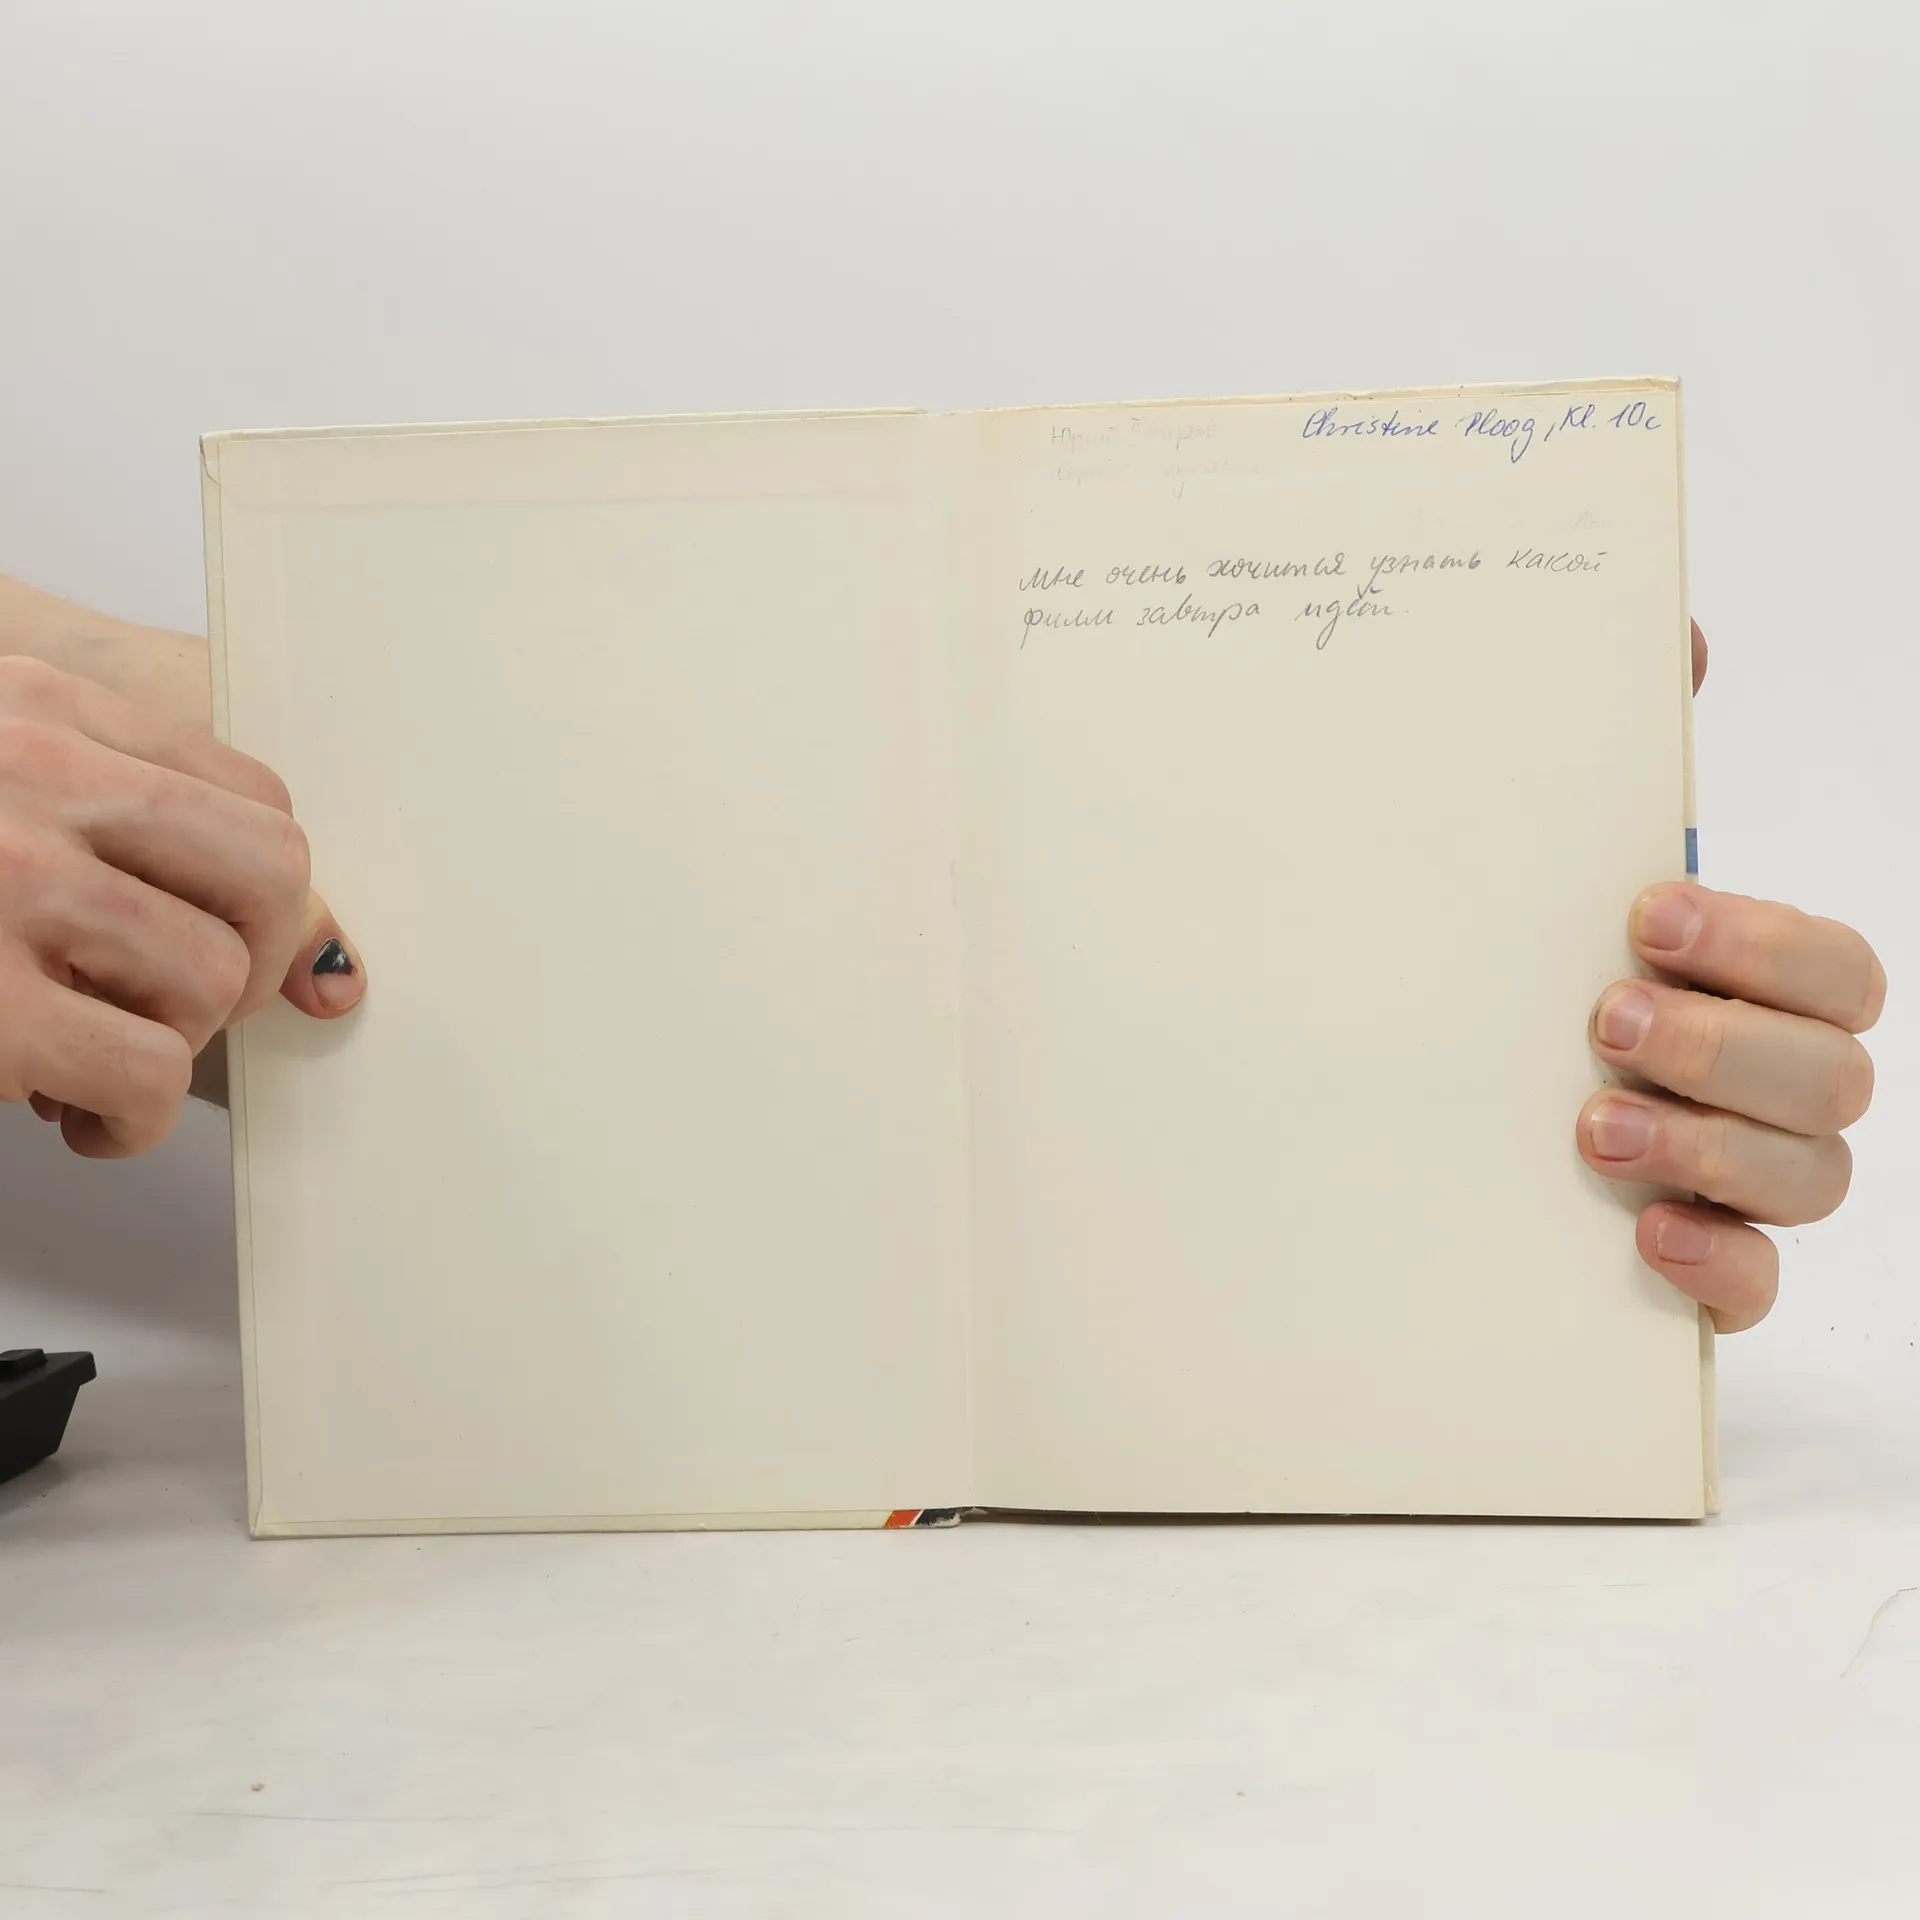 Christine Ploog, Kl. 10c
Юрий
мне очень хочится узнать какой
филм завтра идёт.